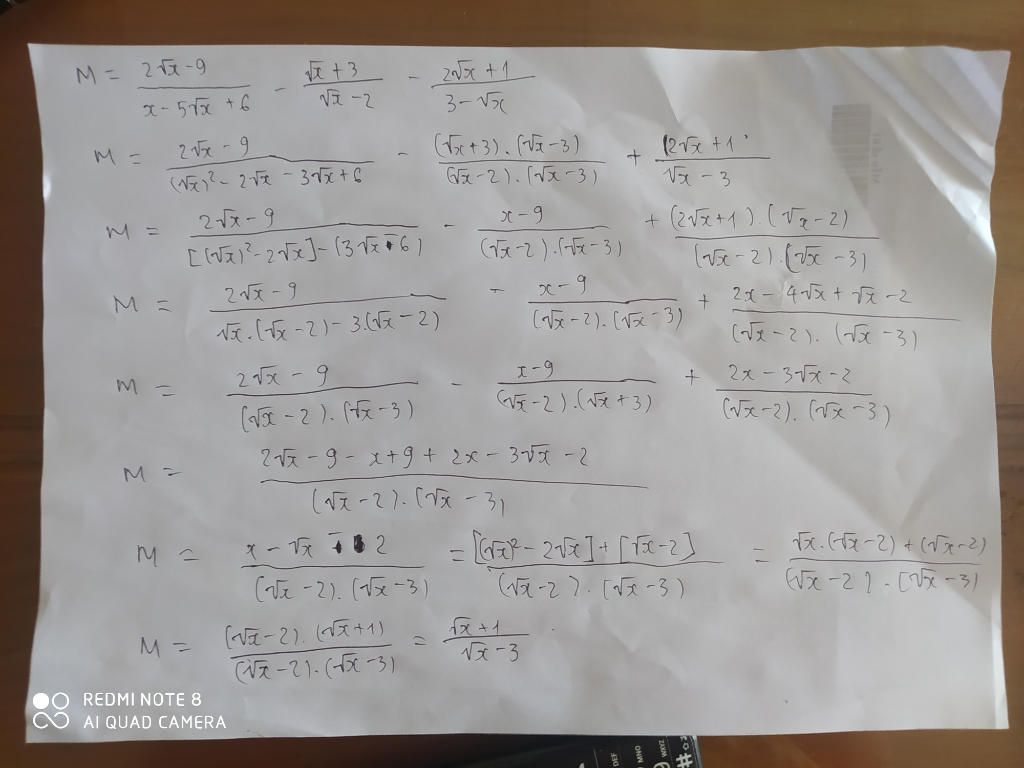 M = (2√x - 9)/(x - 5√x + 6) - (√x + 3)/(√x - 2) - (2√x + 1)/(3 - √x)
M = (2√x - 9)/((√x)² - 2√x - 3√x + 6) - ((√x + 3).(√x - 3))/((√x - 2).(√x - 3)) + (2√x + 1)/(√x - 3)
M = (2√x - 9)/([(√x)² - 2√x] - (3√x - 6)) - (x - 9)/((√x - 2).(√x - 3)) + ((2√x + 1).(√x - 2))/((√x - 2).(√x - 3))
M = (2√x - 9)/(√x.(√x - 2) - 3.(√x - 2)) - (x - 9)/((√x - 2).(√x - 3)) + (2x - 4√x + √x - 2)/((√x - 2).(√x - 3))
M = (2√x - 9)/((√x - 2).(√x - 3)) - (x - 9)/((√x - 2).(√x + 3)) + (2x - 3√x - 2)/((√x - 2).(√x - 3))
M = (2√x - 9 - x + 9 + 2x - 3√x - 2)/((√x - 2).(√x - 3))
M = (x - √x - 2)/((√x - 2).(√x - 3)) = ([(√x)² - 2√x] + [√x - 2])/((√x - 2).(√x - 3)) = (√x.(√x - 2) + (√x - 2))/((√x - 2).(√x - 3))
M = ((√x - 2).(√x + 1))/((√x - 2).(√x - 3)) = (√x + 1)/(√x - 3)
REDMI NOTE 8
AI QUAD CAMERA
DEF
MNO
WXYZ
#